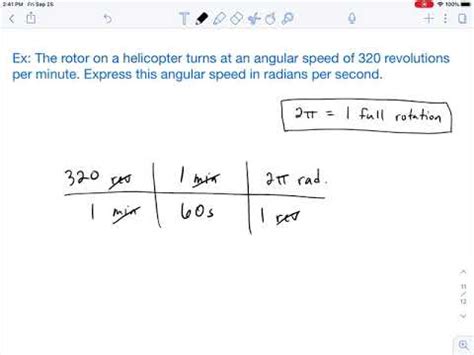 2:41 PM Fri Sep 25
100%
Ex: The rotor on a helicopter turns at an angular speed of 320 revolutions
per minute. Express this angular speed in radians per second.
2π = 1 full rotation
320 rev 1 min 2π rad.
1 min 60s 1 rev
11
/
12